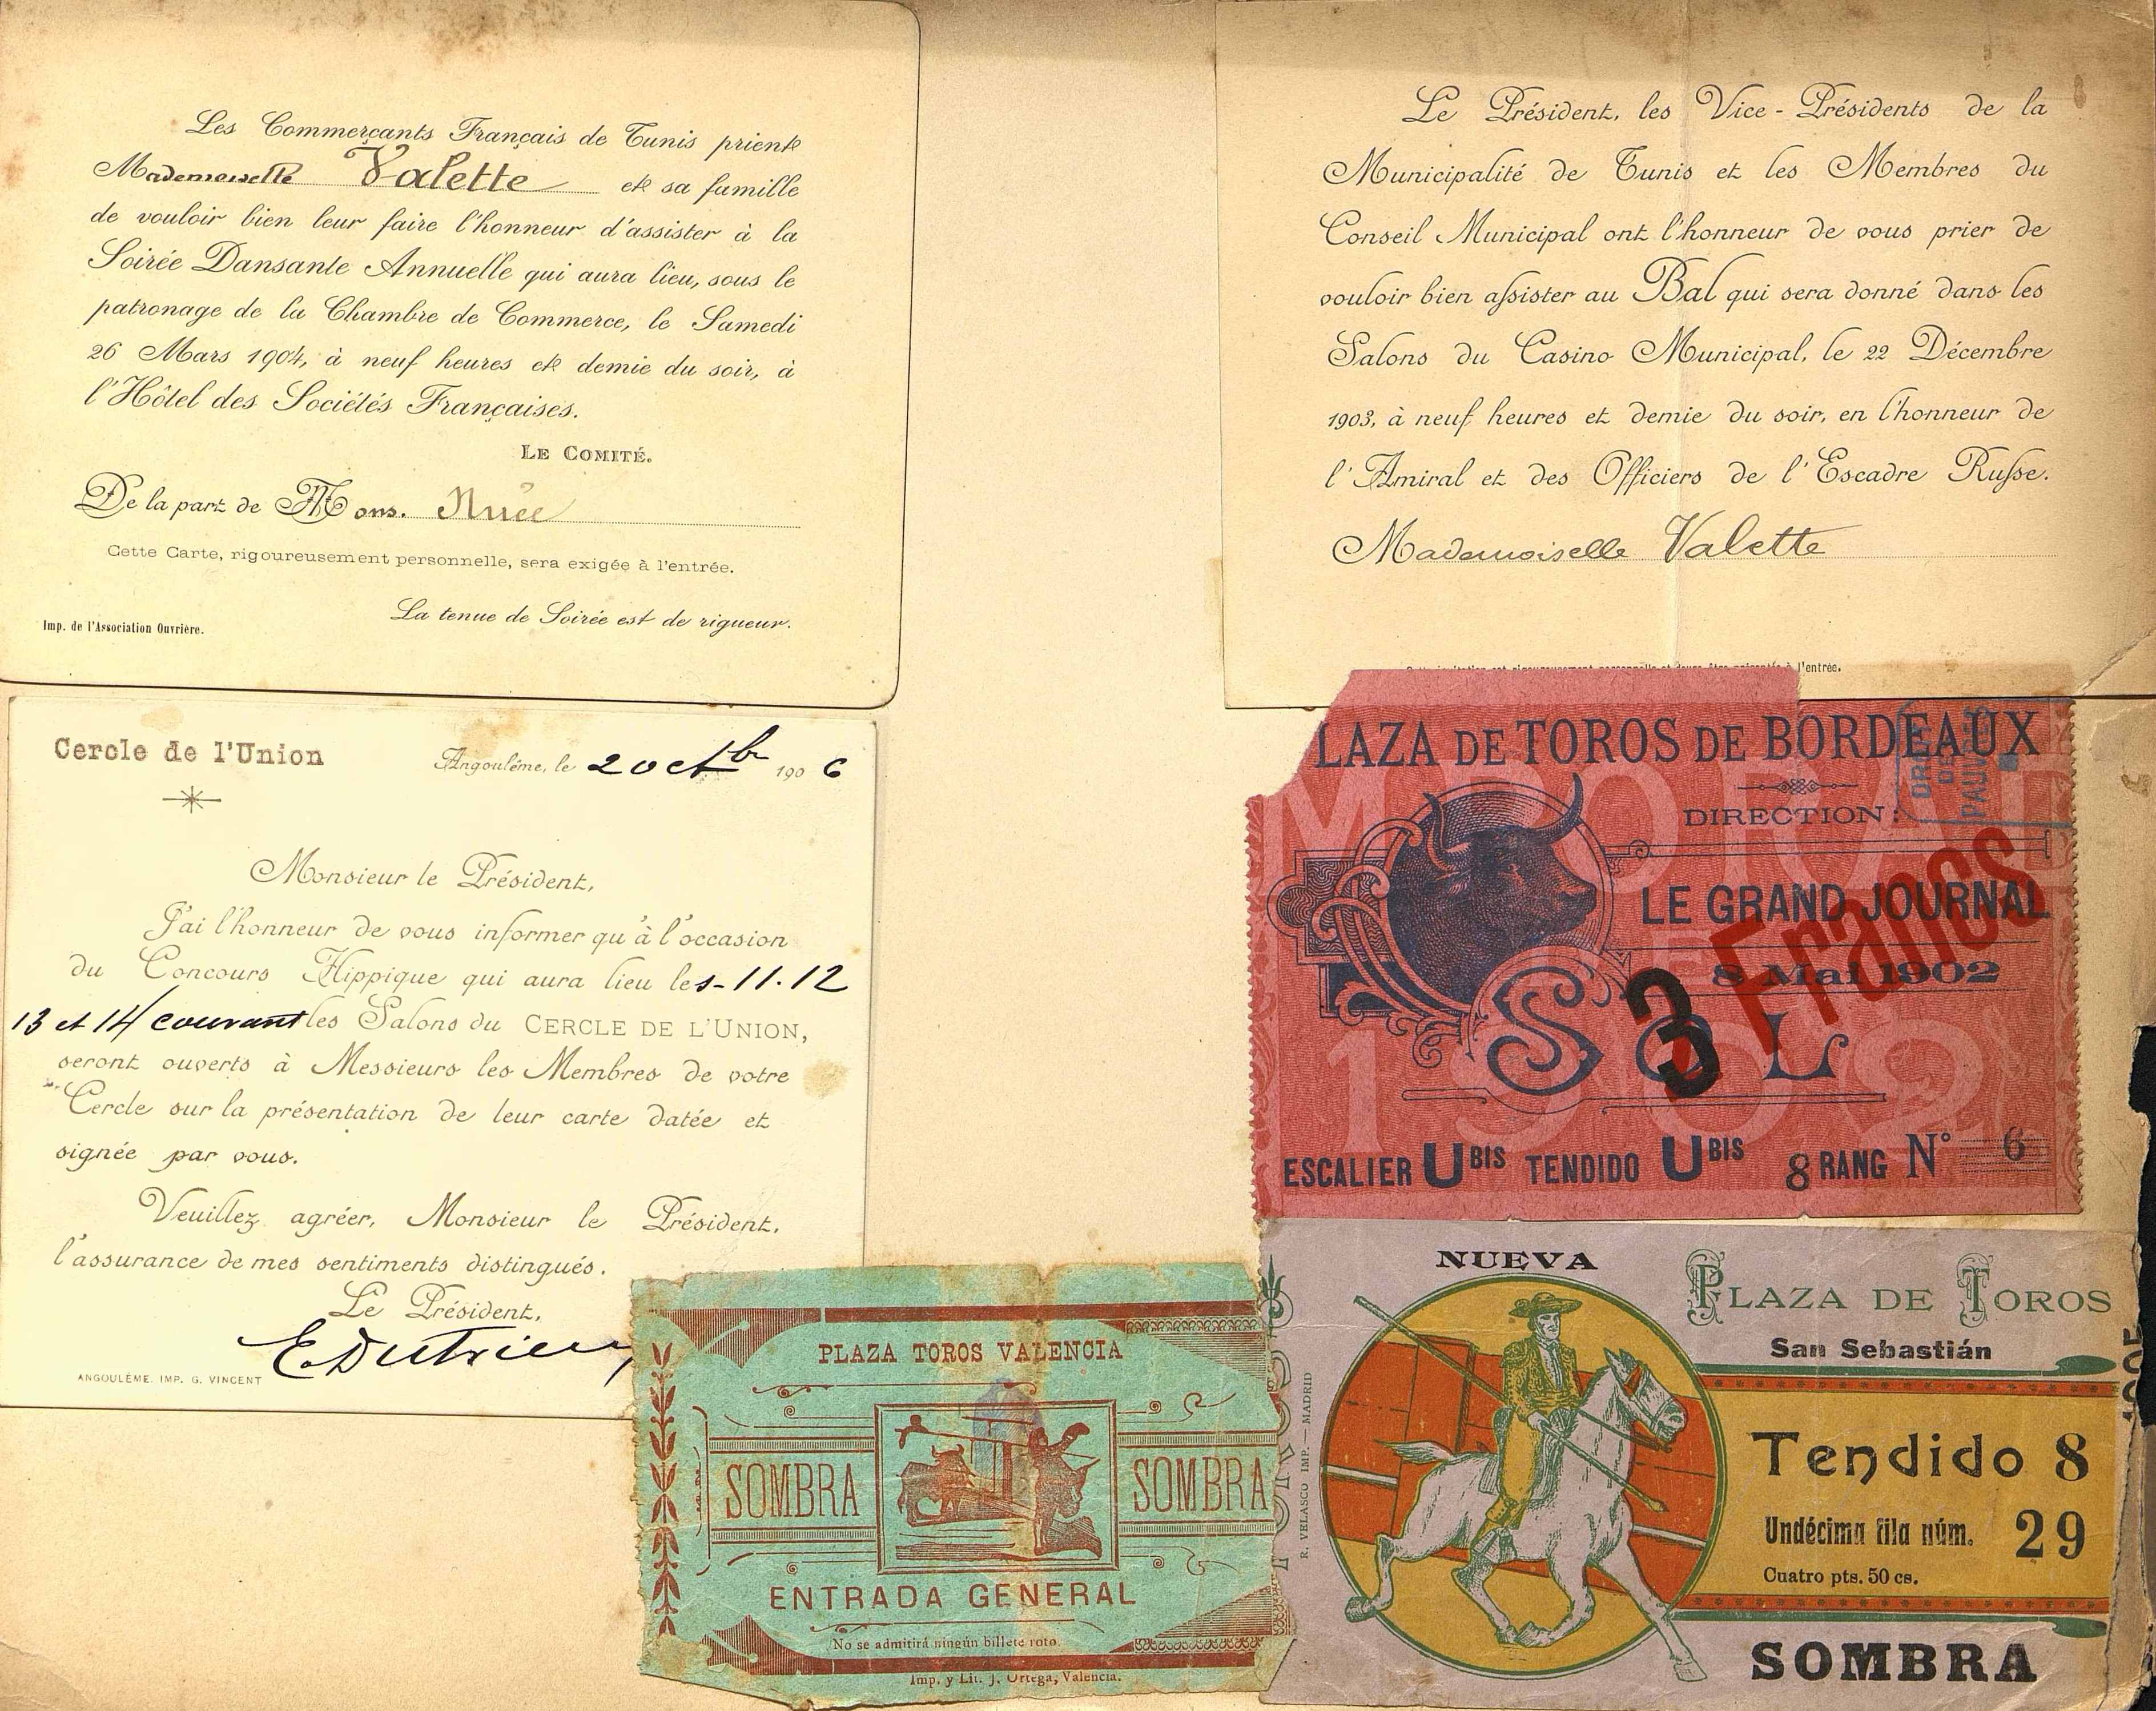 Les Commerçants Français de Tunis prient
Mademoiselle Valette et sa famille
de vouloir bien leur faire l'honneur d'assister à la
Soirée Dansante Annuelle qui aura lieu, sous le
patronage de la Chambre de Commerce, le Samedi
26 Mars 1904, à neuf heures et demie du soir, à
l'Hôtel des Sociétés Françaises.
LE COMITÉ.
De la part de Mons.
Cette Carte, rigoureusement personnelle, sera exigée à l'entrée.
La tenue de Soirée est de rigueur.
Imp. de l'Association Ouvrière.
Le Président, les Vice-Présidents de la
Municipalité de Tunis et les Membres du
Conseil Municipal ont l'honneur de vous prier de
vouloir bien assister au Bal qui sera donné dans les
Salons du Casino Municipal, le 22 Décembre
1903, à neuf heures et demie du soir, en l'honneur de
l'Amiral et des Officiers de l'Escadre Russe.
Mademoiselle Valette
à l'entrée.
Cercle de l'Union
Angoulême, le 2 octbr 1906
Monsieur le Président,
J'ai l'honneur de vous informer qu'à l'occasion
du Concours Hippique qui aura lieu les 11. 12
13 et 14 courant les Salons du CERCLE DE L'UNION,
seront ouverts à Messieurs les Membres de votre
Cercle sur la présentation de leur carte datée et
signée par vous.
Veuillez agréer, Monsieur le Président,
l'assurance de mes sentiments distingués.
Le Président,
ANGOULÊME. IMP. G. VINCENT
LAZA DE TOROS DE BORDEAUX
DROIT
DES
PAUVRES
DIRECTION:
LE GRAND JOURNAL
8 Mai 1902
3 Francs
SOL
1902
ESCALIER UBIS TENDIDO UBIS 8 RANG N° 6
PLAZA TOROS VALENCIA
SOMBRA
SOMBRA
ENTRADA GENERAL
No se admitirá ningún billete roto.
Imp. y Lit. J. Ortega, Valencia.
NUEVA
PLAZA DE TOROS
San Sebastián
Tendido 8
Undécima fila núm. 29
Cuatro pts. 50 cs.
SOMBRA
R. VELASCO IMP. — MADRID